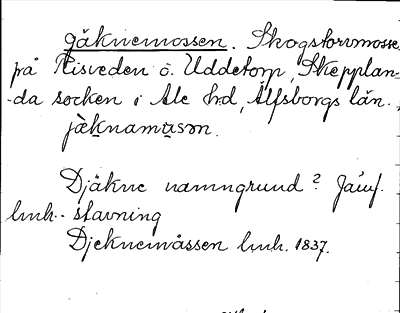 gäknemossen. Skogstorvmosse
på Risveden ö. Uddetorp, Skepplan-
-da socken i Ale hd, Älfsborgs län.
jäknamosən.
Djäkne namngrund? Jämf.
lmh.-stavning
Djeknemåssen lmh. 1837.